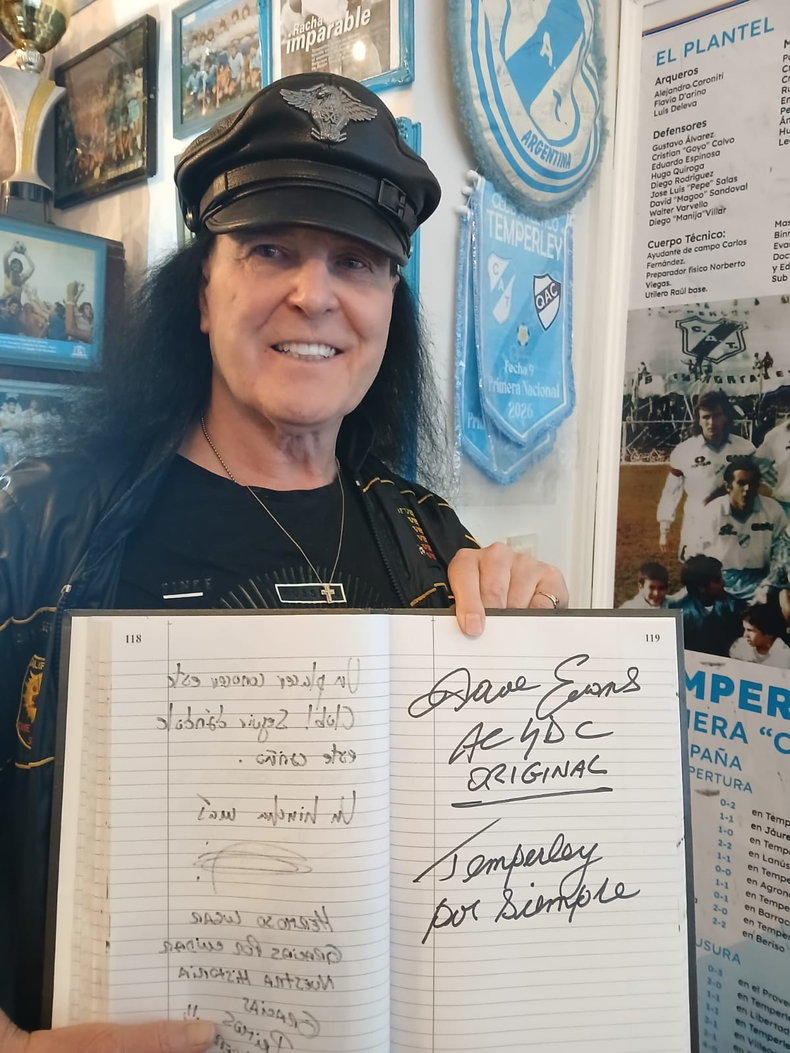 Racha
imparable
CAT
ARGENTINA
TEMPERLEY
CAT
QAC
Fecha 9
Primera Nacional
2026
EL PLANTEL
Arqueros
Alejandro Caroniti
Flavio D'arino
Luis Deleva
Defensores
Gustavo Álvarez
Cristian "Goyo" Calvo
Eduardo Espinosa
Hugo Quiroga
Diego Rodríguez
Jose Luis "Pepe" Salas
David "Magoo" Sandoval
Walter Varvello
Diego "Manija"Villar
Cuerpo Técnico:
Ayudante de campo Carlos
Fernández.
Preparador físico Norberto
Viegas.
Utilero Raúl base.
C.A.T.
SINCE
118
Un placer conocer este
Club! Seguir dándole
este cariño.
Un hincha más
Hermoso lugar
Gracias por cuidar
Nuestra Historia
Gracias
119
Dave Evans
AC⚡DC
ORIGINAL
Temperley
por siempre
MPER
ERA "C
PAÑA
PERTURA
0-2 en Temp
1-1 en Jáure
1-0 en Temp
2-2 en Lanús
1-1 en Tempe
0-0 en Agron
1-1 en Tempe
0-1 en Barrac
2-0 en Temper
2-2 en Beriso
USURA
0-3 en el Prove
en Temperle
en Libertad
en Temperle